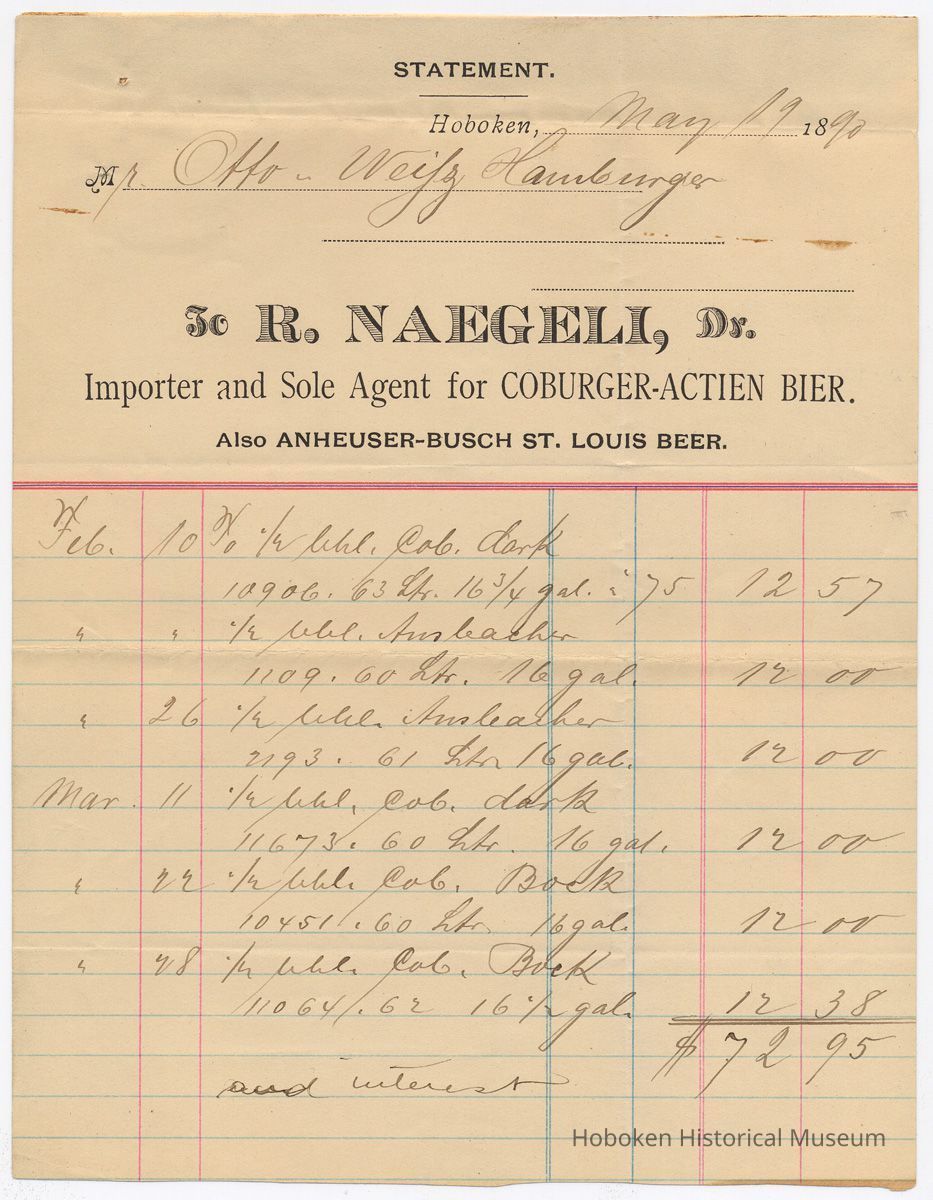 STATEMENT.
Hoboken, May 19 1890
Mr. Otto Weisz Hamburger
To R. NAEGELI, Dr.
Importer and Sole Agent for COBURGER-ACTIEN BIER.
Also ANHEUSER-BUSCH ST. LOUIS BEER.
Feb. 10 1/2 bbl. Cob. dark
10906. 63 Ltr. 16 3/4 gal. à 75 12 57
" " 1/2 bbl. Ansbacher
1109. 60 Ltr. 16 gal. 12 00
" 26 1/2 bbl. Ansbacher
2193. 61 Ltr. 16 gal. 12 00
Mar. 11 1/2 bbl. Cob. dark
11673. 60 Ltr. 16 gal. 12 00
" 22 1/2 bbl. Cob. Bock
10451. 60 Ltr. 16 gal. 12 00
" 28 1/2 bbl. Cob. Bock
11064/. 62 16 1/2 gal. 12 38
$ 72 95
and interest
Hoboken Historical Museum